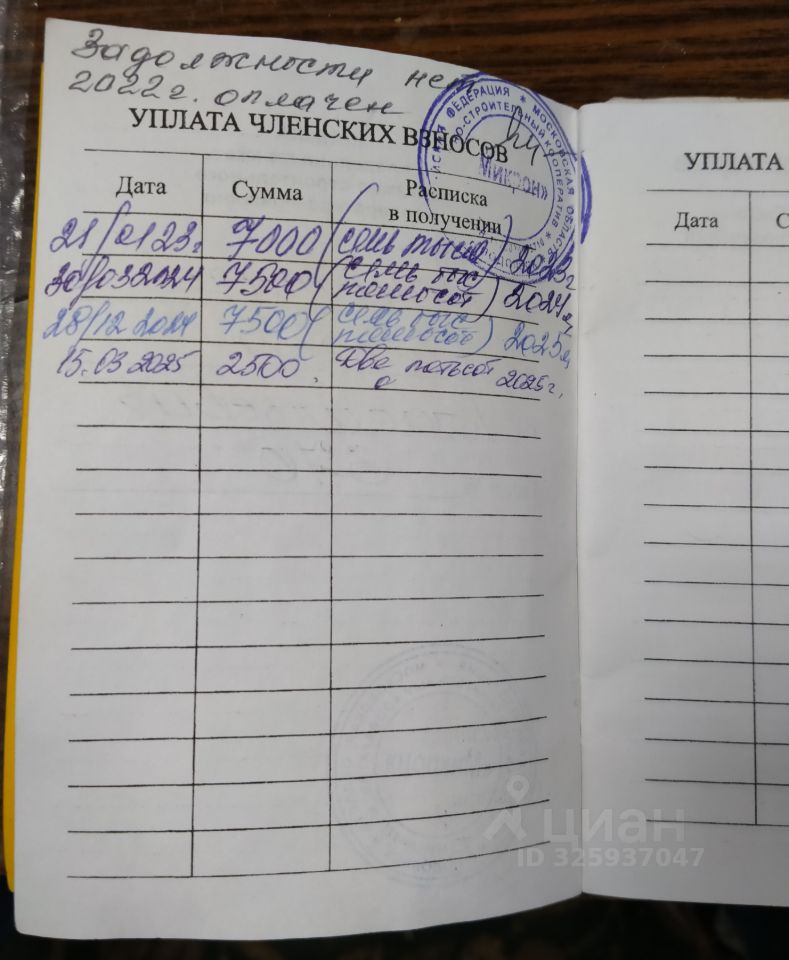 Задолжности нет
2022 г. оплачен
УПЛАТА ЧЛЕНСКИХ ВЗНОСОВ
Дата Сумма Расписка в получении
21/01 23г. 7000 (семь тысяч) 2023г
30/03 2024 7500 (семь тыс пятьсот) 2024г,
28/12 2024 7500 (семь тыс пятьсот) 2025г,
15.03 2025 2500. Две пятьсот 2025 г,
ФЕДЕРАЦИЯ * МОСКОВСКАЯ ОБЛАСТЬ *
СТРОИТЕЛЬНЫЙ КООПЕРАТИВ *
МИКРОН»
УПЛАТА
Дата С
циан
ID 325937047